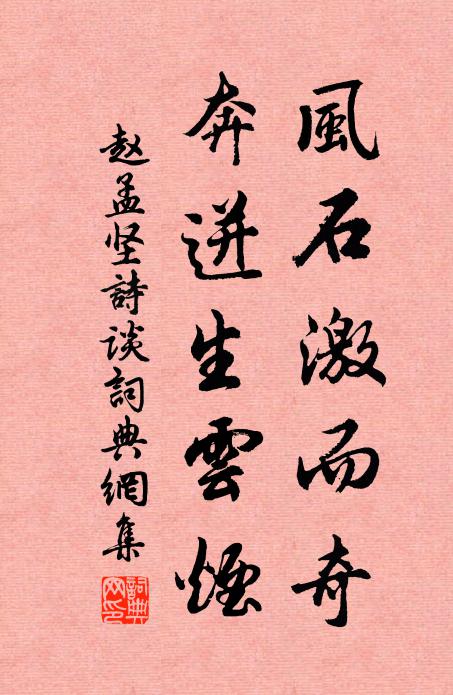 風石激而奇
奔迸生雲煙
赵孟坚詩谈詞典網集
詞典網印